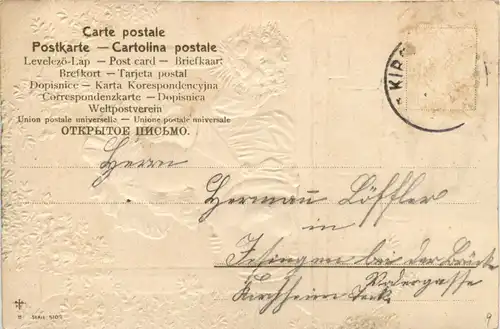 Carte postale
Postkarte — Cartolina postale
Levelezö-Lap — Post card — Briefkaart
Brefkort — Tarjeta postal
Dopisnice — Karta Korespondencyjna
Correspondenzkarte — Dopisnica
Weltpostverein
Union postale universelle — Unione postale universale
ОТКРЫТОЕ ПИСЬМО.
KIR
Herrn
Hermann Löffler
in
Jesingen bei der Brücke
Kirchheim Teck
9